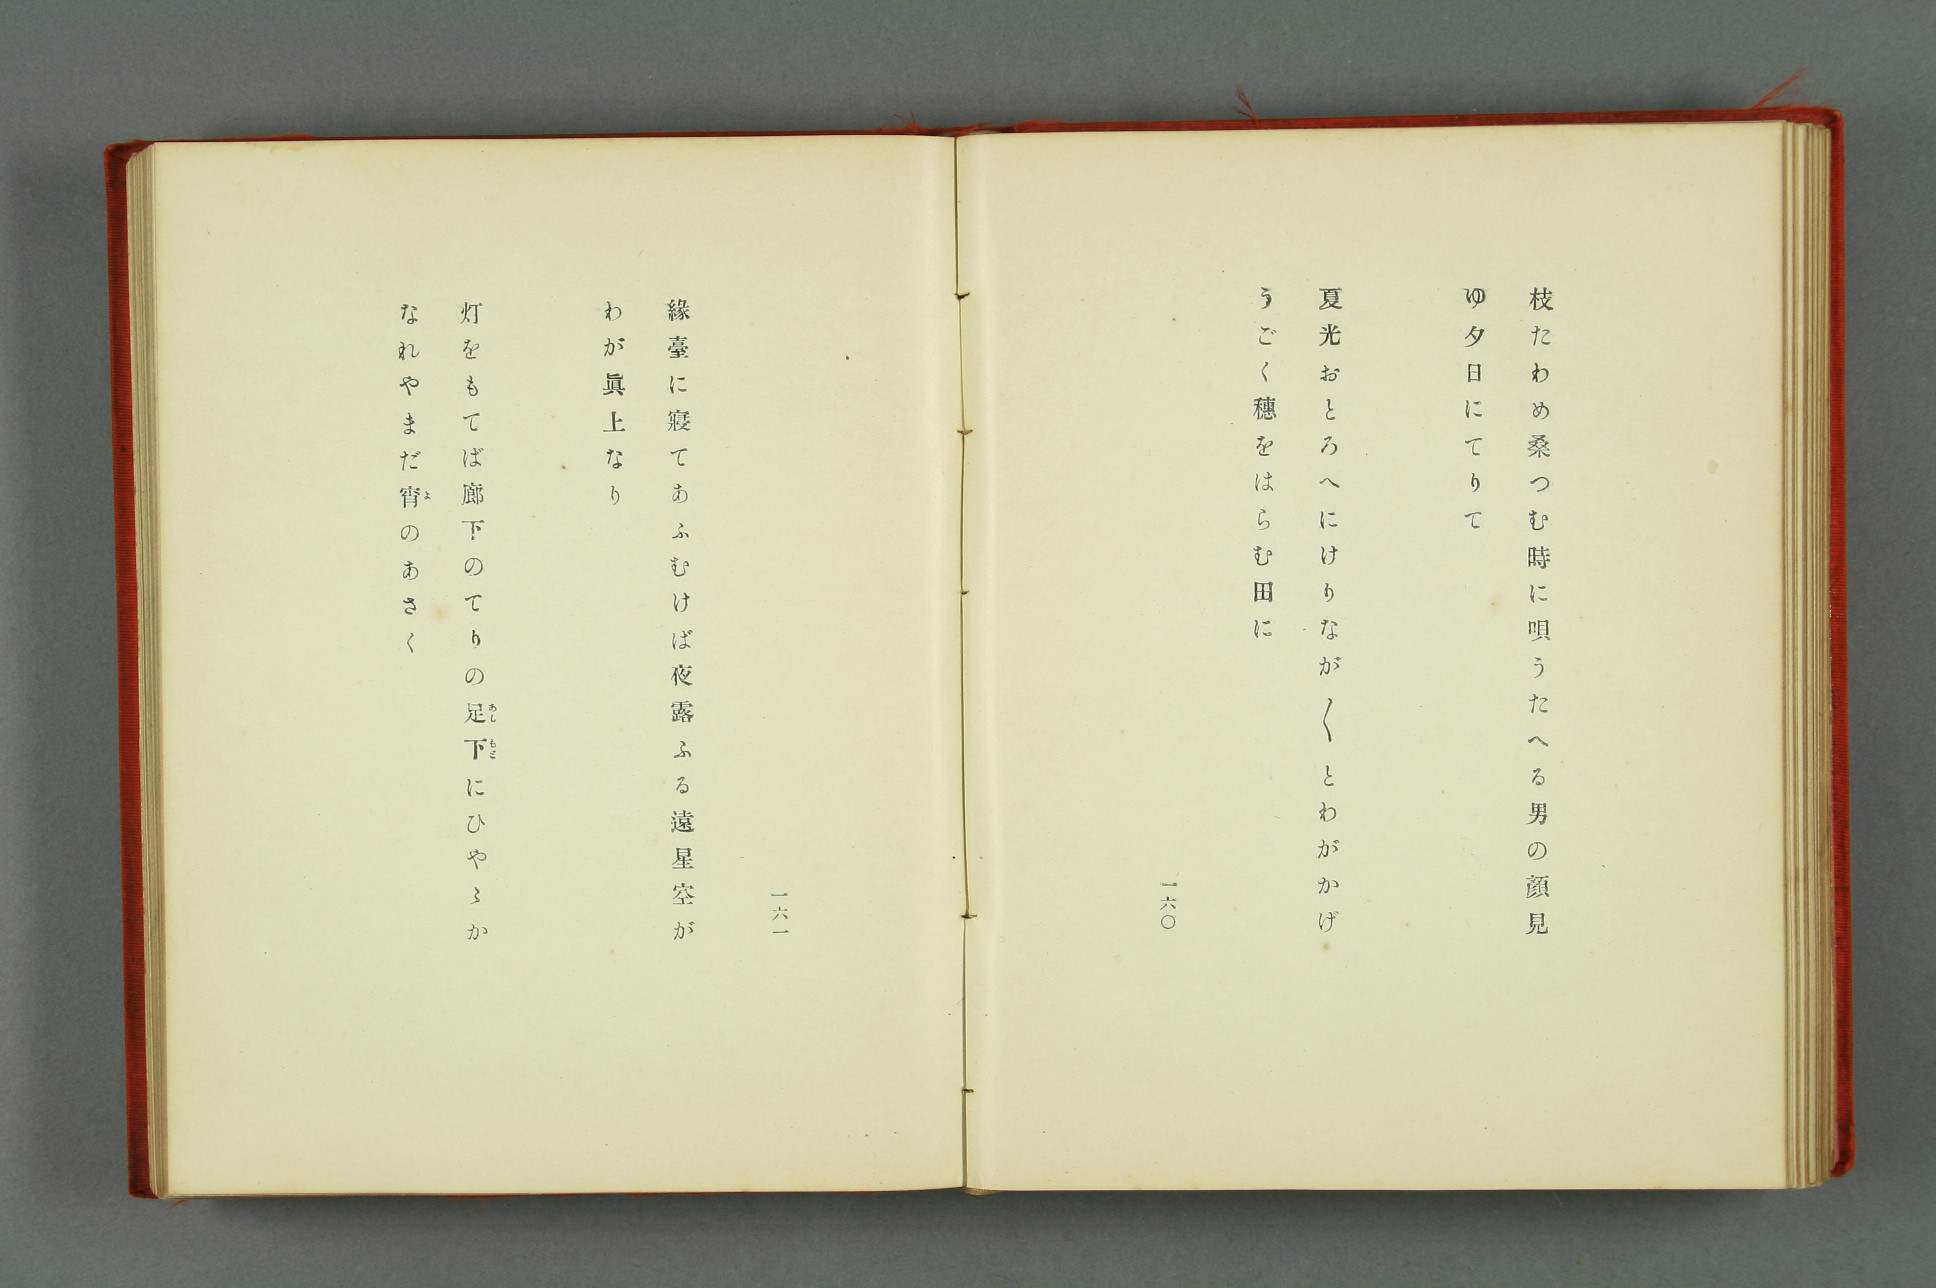 枝たわめ桑つむ時に唄うたへる男の顔見
ゆ夕日にてりて
夏光おとろへにけりなが〱とわがかげ
うごく穗をはらむ田に
一六〇
一六一
緣臺に寢てあふむけば夜露ふる遠星空が
わが眞上なり
灯をもてば廊下のてりの足下にひやゝか
あし もと
なれやまだ宵のあさく
よ